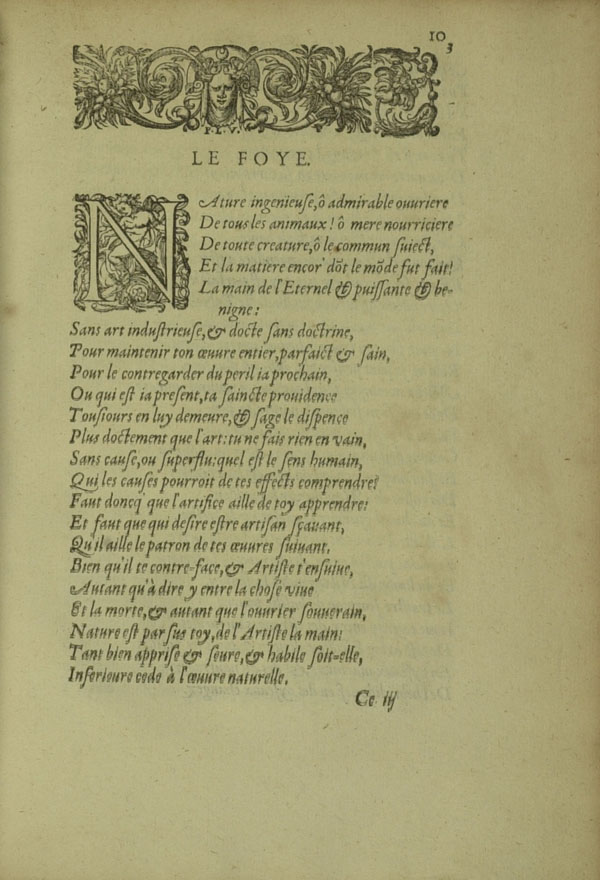 10
3
F. L. V.
LE FOYE.
NAture ingenieuse, ô admirable ouuriere
De tous les animaux! ô mere nourriciere
De toute creature, ô le commun suiect,
Et la matiere encor' dõt le mõde fut fait!
La main de l'Eternel & puissante & be-
nigne:
Sans art industrieuse, & docte sans doctrine,
Pour maintenir ton œuure entier, parfaict & sain,
Pour le contregarder du peril ia prochain,
Ou qui est ia present, ta saincte prouidence
Tousiours en luy demeure, & sage le dispence
Plus doctement que l'art: tu ne fais rien en vain,
Sans cause, ou superflu: quel est le sens humain,
Qui les causes pourroit de tes effects comprendre?
Faut doncq' que l'artifice aille de toy apprendre:
Et faut que qui desire estre artisan sçauant,
Qu'il aille le patron de tes œuures suiuant.
Bien qu'il te contre-face, & Artiste t'ensuiue,
Autant qu'à dire y entre la chose viue
Et la morte, & autant que l'ouurier souuerain,
Nature est par sus toy, de l'Artiste la main:
Tant bien apprise & seure, & habile soit-elle,
Inferieure cede à l'œuure naturelle.
Cc iij